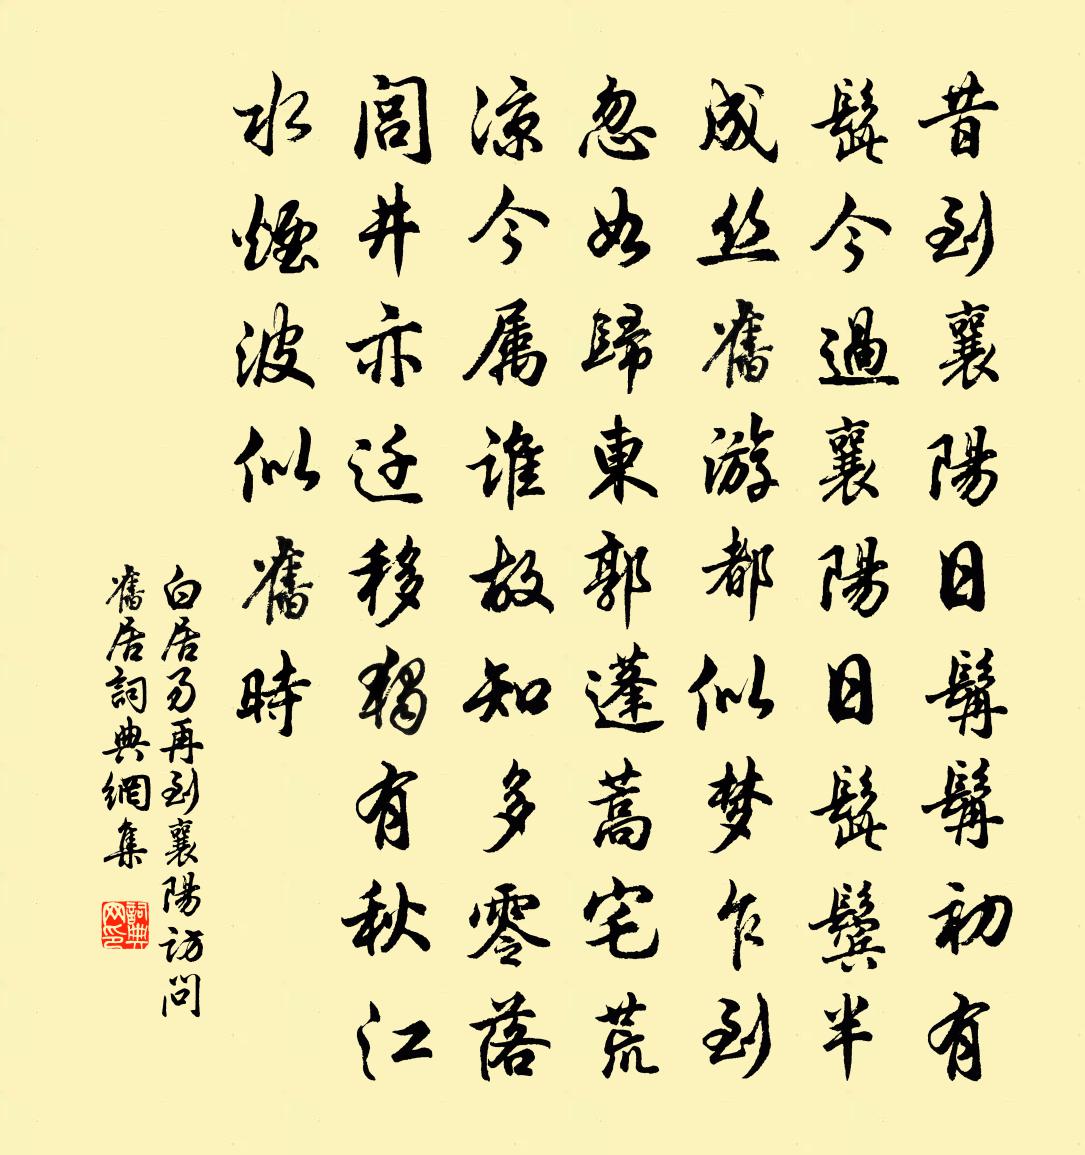 昔到襄陽日髯髯初有
髭今過襄陽日髭鬢半
成丝舊游都似梦乍到
忽如歸東郭蓬蒿宅荒
涼今属誰故知多零落
閭井亦迁移獨有秋江
水煙波似舊時
白居易再到襄陽訪問
舊居詞典網集
詞典
网印